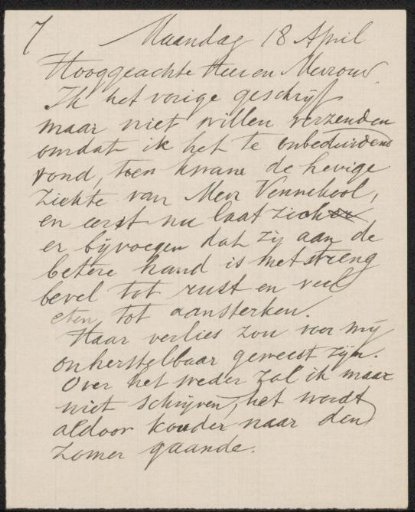 7 Maandag 18 April
Hooggeachte Heer en Mevrouw.
Ik het vorige geschrijf
maar niet willen verzenden
omdat ik het te onbeduidend
vond, toen kwam de hevige
ziekte van Mevr Vennekool,
en eerst nu laat zich
er bijvoegen dat zij aan de
betere hand is met streng
bevel tot rust en veel
eten, tot aansterken.
Haar verlies zou voor mij
onherstelbaar geweest zijn.
Over het weder zal ik maar
niet schrijven, het wordt
aldoor kouder naar den
zomer gaande.